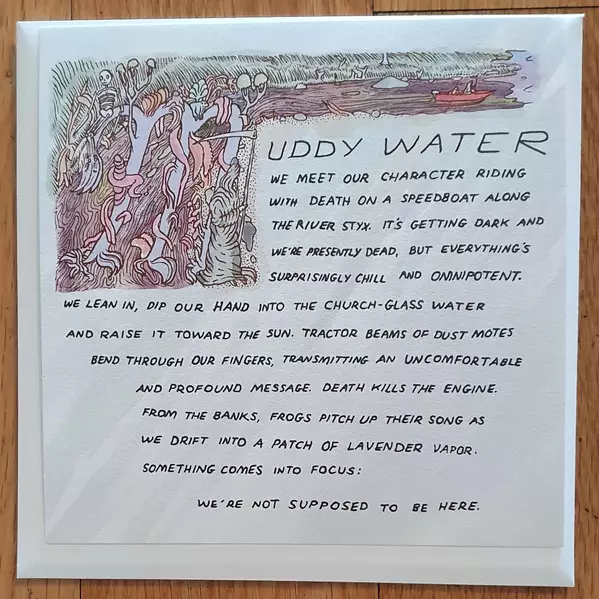 MUDDY WATER
WE MEET OUR CHARACTER RIDING
WITH DEATH ON A SPEEDBOAT ALONG
THE RIVER STYX. IT'S GETTING DARK AND
WE'RE PRESENTLY DEAD, BUT EVERYTHING'S
SURPRISINGLY CHILL AND OMNIPOTENT.
WE LEAN IN, DIP OUR HAND INTO THE CHURCH-GLASS WATER
AND RAISE IT TOWARD THE SUN. TRACTOR BEAMS OF DUST MOTES
BEND THROUGH OUR FINGERS, TRANSMITTING AN UNCOMFORTABLE
AND PROFOUND MESSAGE. DEATH KILLS THE ENGINE.
FROM THE BANKS, FROGS PITCH UP THEIR SONG AS
WE DRIFT INTO A PATCH OF LAVENDER VAPOR.
SOMETHING COMES INTO FOCUS:
WE'RE NOT SUPPOSED TO BE HERE.